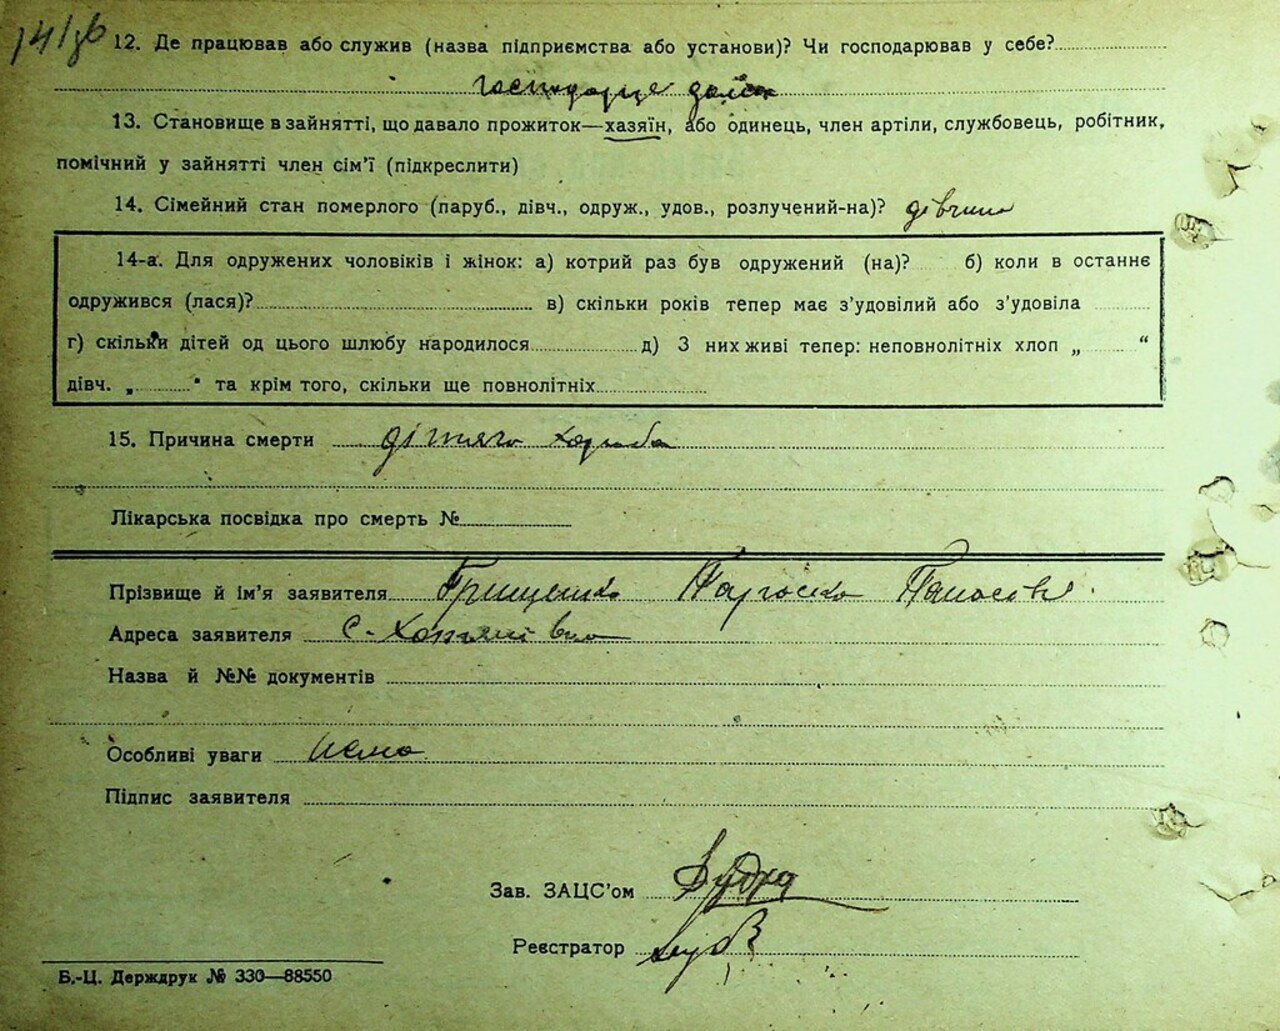 12. Де працював або служив (назва підприємства або установи)? Чи господарював у себе?
господарює дома
13. Становище в зайнятті, що давало прожиток—хазяїн, або одинець, член артіли, службовець, робітник,
помічний у зайнятті член сім’ї (підкреслити)
14. Сімейний стан померлого (паруб., дівч., одруж., удов., розлучений-на)? дівчина
14-а. Для одружених чоловіків і жінок: а) котрий раз був одружений (на)? б) коли в останнє
одружився (лася)? в) скільки років тепер має з’удовілий або з’удовіла
г) скільки дітей од цього шлюбу народилося д) З них живі тепер: неповнолітніх хлоп „ “
дівч. „ “ та крім того, скільки ще повнолітніх
15. Причина смерти дітяча хороба
Лікарська посвідка про смерть №
Прізвище й ім’я заявителя Грищенко Параска Панасів
Адреса заявителя с.
Назва й №№ документів
Особливі уваги нема
Підпис заявителя
Зав. ЗАЦС’ом
Реєстратор
Б.-Ц. Держдрук № 330—88550